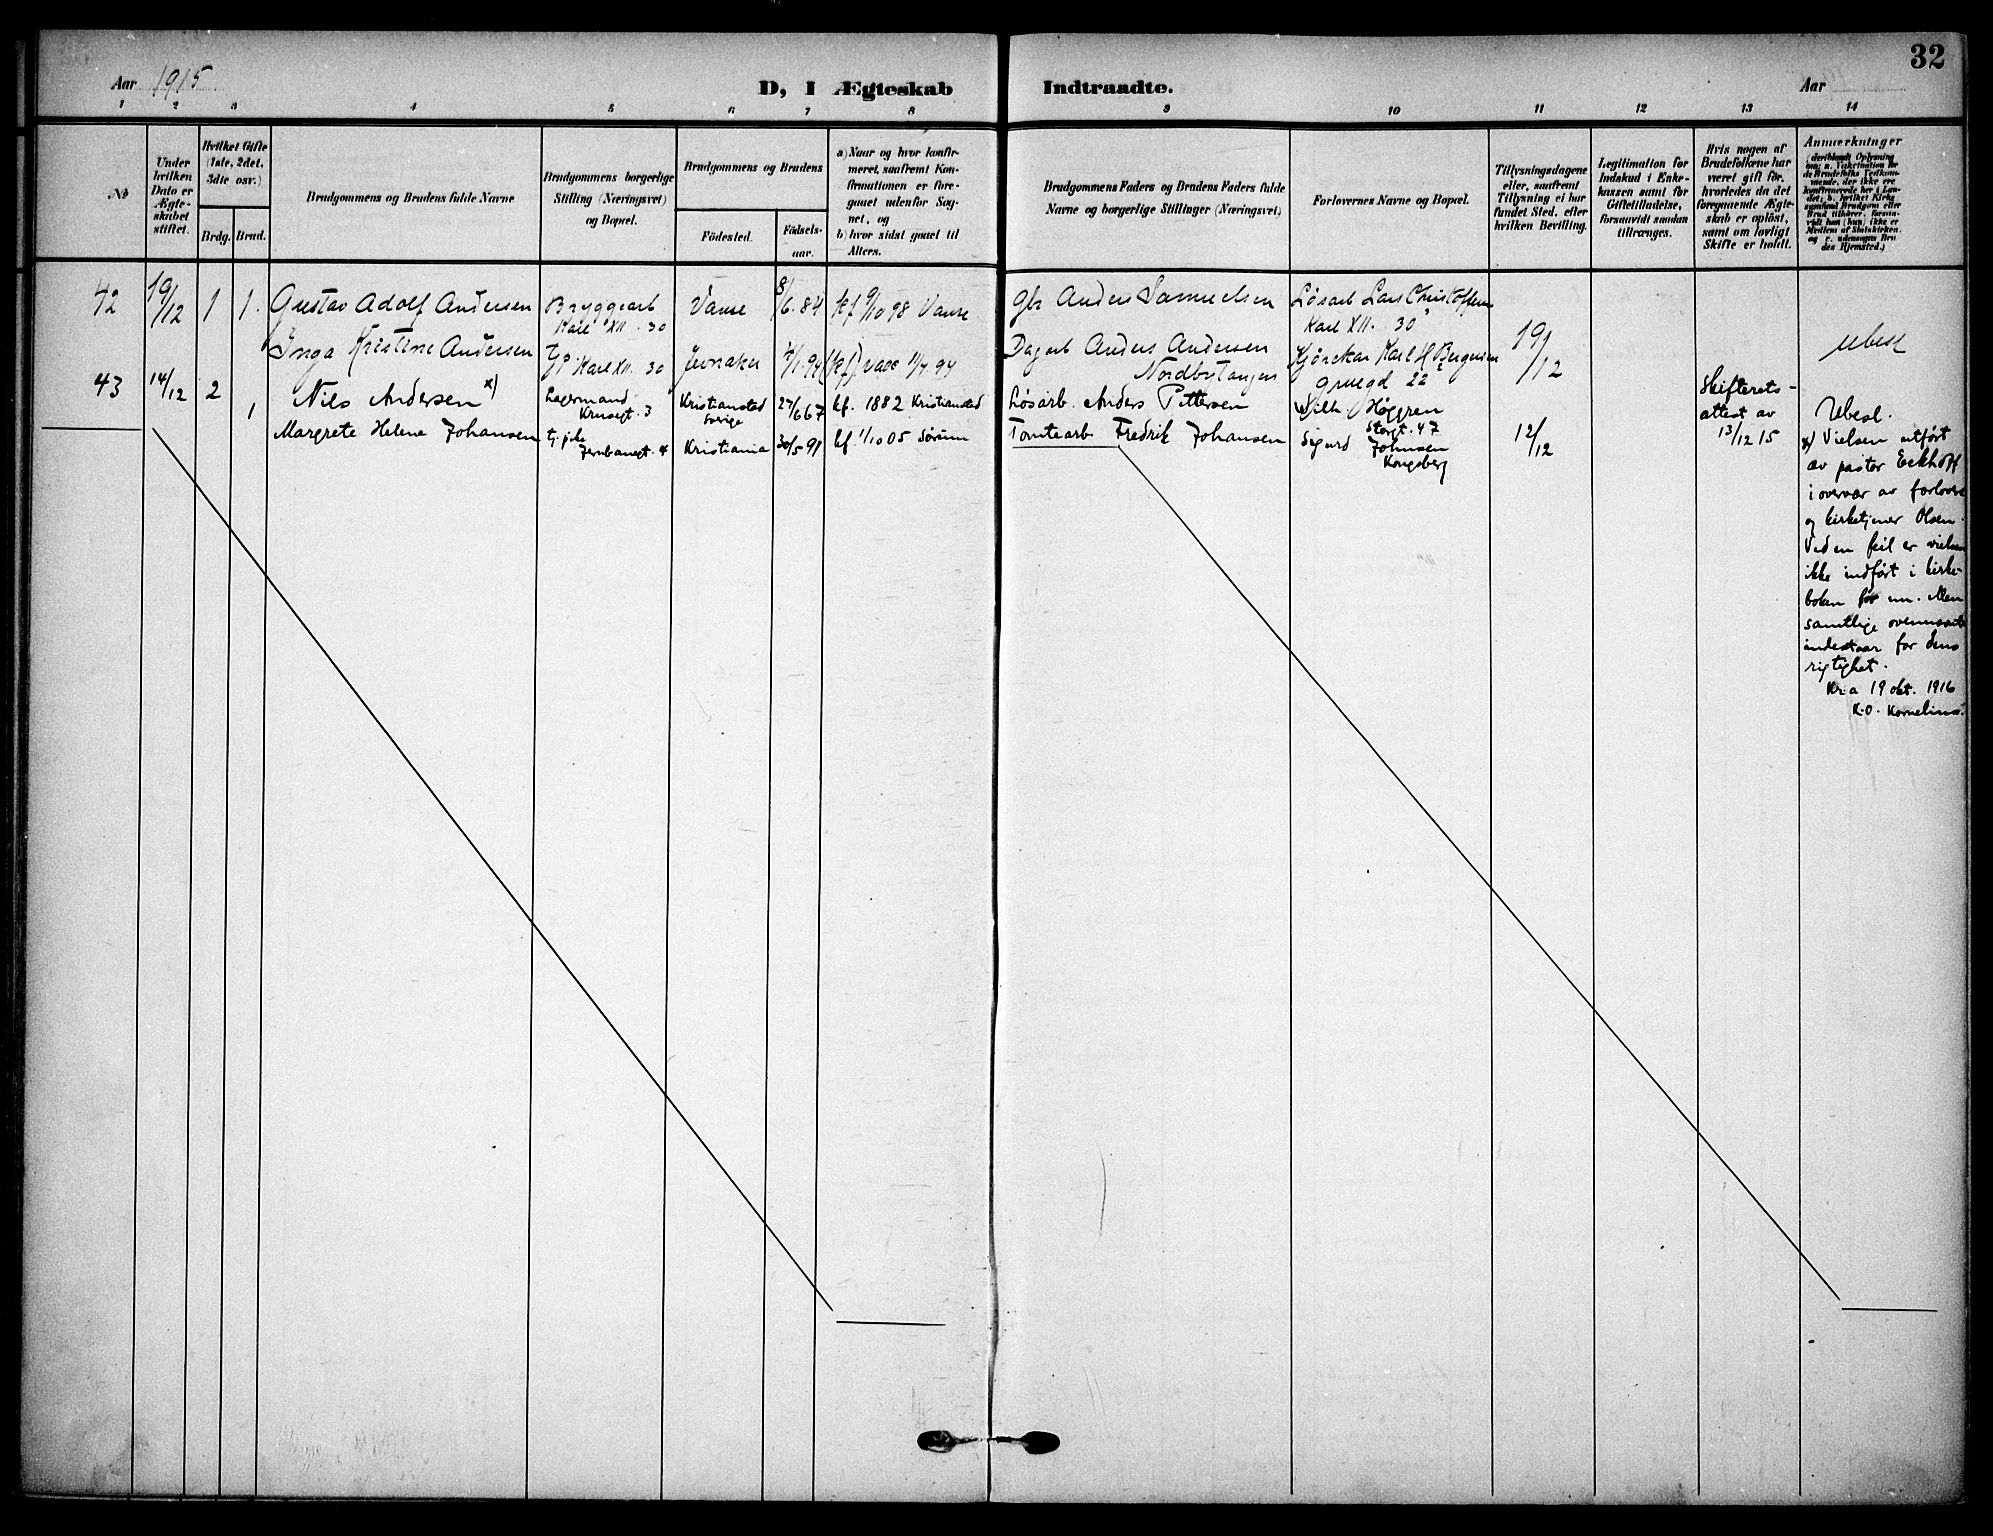 32
Aar 1915
D, I Ægteskab Indtraadte.
Aar
1 2 3 4 5 6 7 8 9 10 11 12 13 14
№
Under hvilken Dato er Ægteskabet stiftet.
Hvilket Gifte (1ste, 2det, 3dte osv.)
Brdg. Brud.
Brudgommens og Brudens fulde Navne
Brudgommens borgerlige Stilling (Næringsvei) og Bopæl.
Brudgommens og Brudens
Födested. Födselsaar.
a) Naar og hvor konfirmeret, saafremt Konfirmationen er foregaaet udenfor Sognet, og
b) hvor sidst gaaet til Alters.
Brudgommens Faders og Brudens Faders fulde Navne og borgerlige Stillinger (Næringsvei)
Forlovernes Navne og Bopæl.
Tillysningsdagene eller, saafremt Tillysning ei har fundet Sted, efter hvilken Bevilling.
Legitimation for Indskud i Enkekassen samt for Giftetilladelse, forsaavidt saadan tiltrænges.
Hvis nogen af Brudefolkene har været gift før, hvorledes da det foregaaende Ægteskab er oplöst, samt om lovligt Skifte er holdt.
Anmærkninger
(deriblandt Oplysning om: a. Vaksination for de Brudefolks Vedkommende, der ikke ere konfirmerede her i Landet; b. hvilket Kirkesamfund Brudgom eller Brud tilhører, forsaavidt han (hun) ikke er Medlem af Statskirken, og c. udensogns Brudes Hjemsted.)
42 19/12 1 1. Gustav Adolf Andersen Bryggearb Karl XII. 30 Vanse 8/6.84 kf 9/10 98 Vanse
gbr Anders Samuelsen Løsarb Lars Christoffersen Karl XII. 30 19/12 ubesl
Inga Kristine Andersen Tj.p. Karl XII. 30 Jevnaker 94
Dagarb Anders Andersen Nordbytangen Kjørekar Karl H Bergersen 22
43 14/12 2 1 Nils Andersen x) Lagermand Krusegt. 3 Kristiansted Sverige 27/6 67 kf. 1882 Kristiansted
Løsarb. Anders Pettersen Vilh. Høggren Storgt. 47 12/12 Skifteretsattest av 13/12 15 Ubesl.
Margrete Helene Johansen tj.pike Jernbanegt. 4 Kristiania 30/5 91 kf. 1/10 05 Sørum
Tomtearb Fredrik Johansen Sigurd Johnsen Kongsberg
x) Vielsen utført
av pastor Eckhoff
i overvær av forlovere
og kirketjener Olsen.
Ved en feil er vielsen
ikke indført i kirke-
boken før nu. Men
samtlige ovennævnte
indestaar for dens
rigtighet.
Kr.a 19 okt. 1916
K.O. Kornelius.